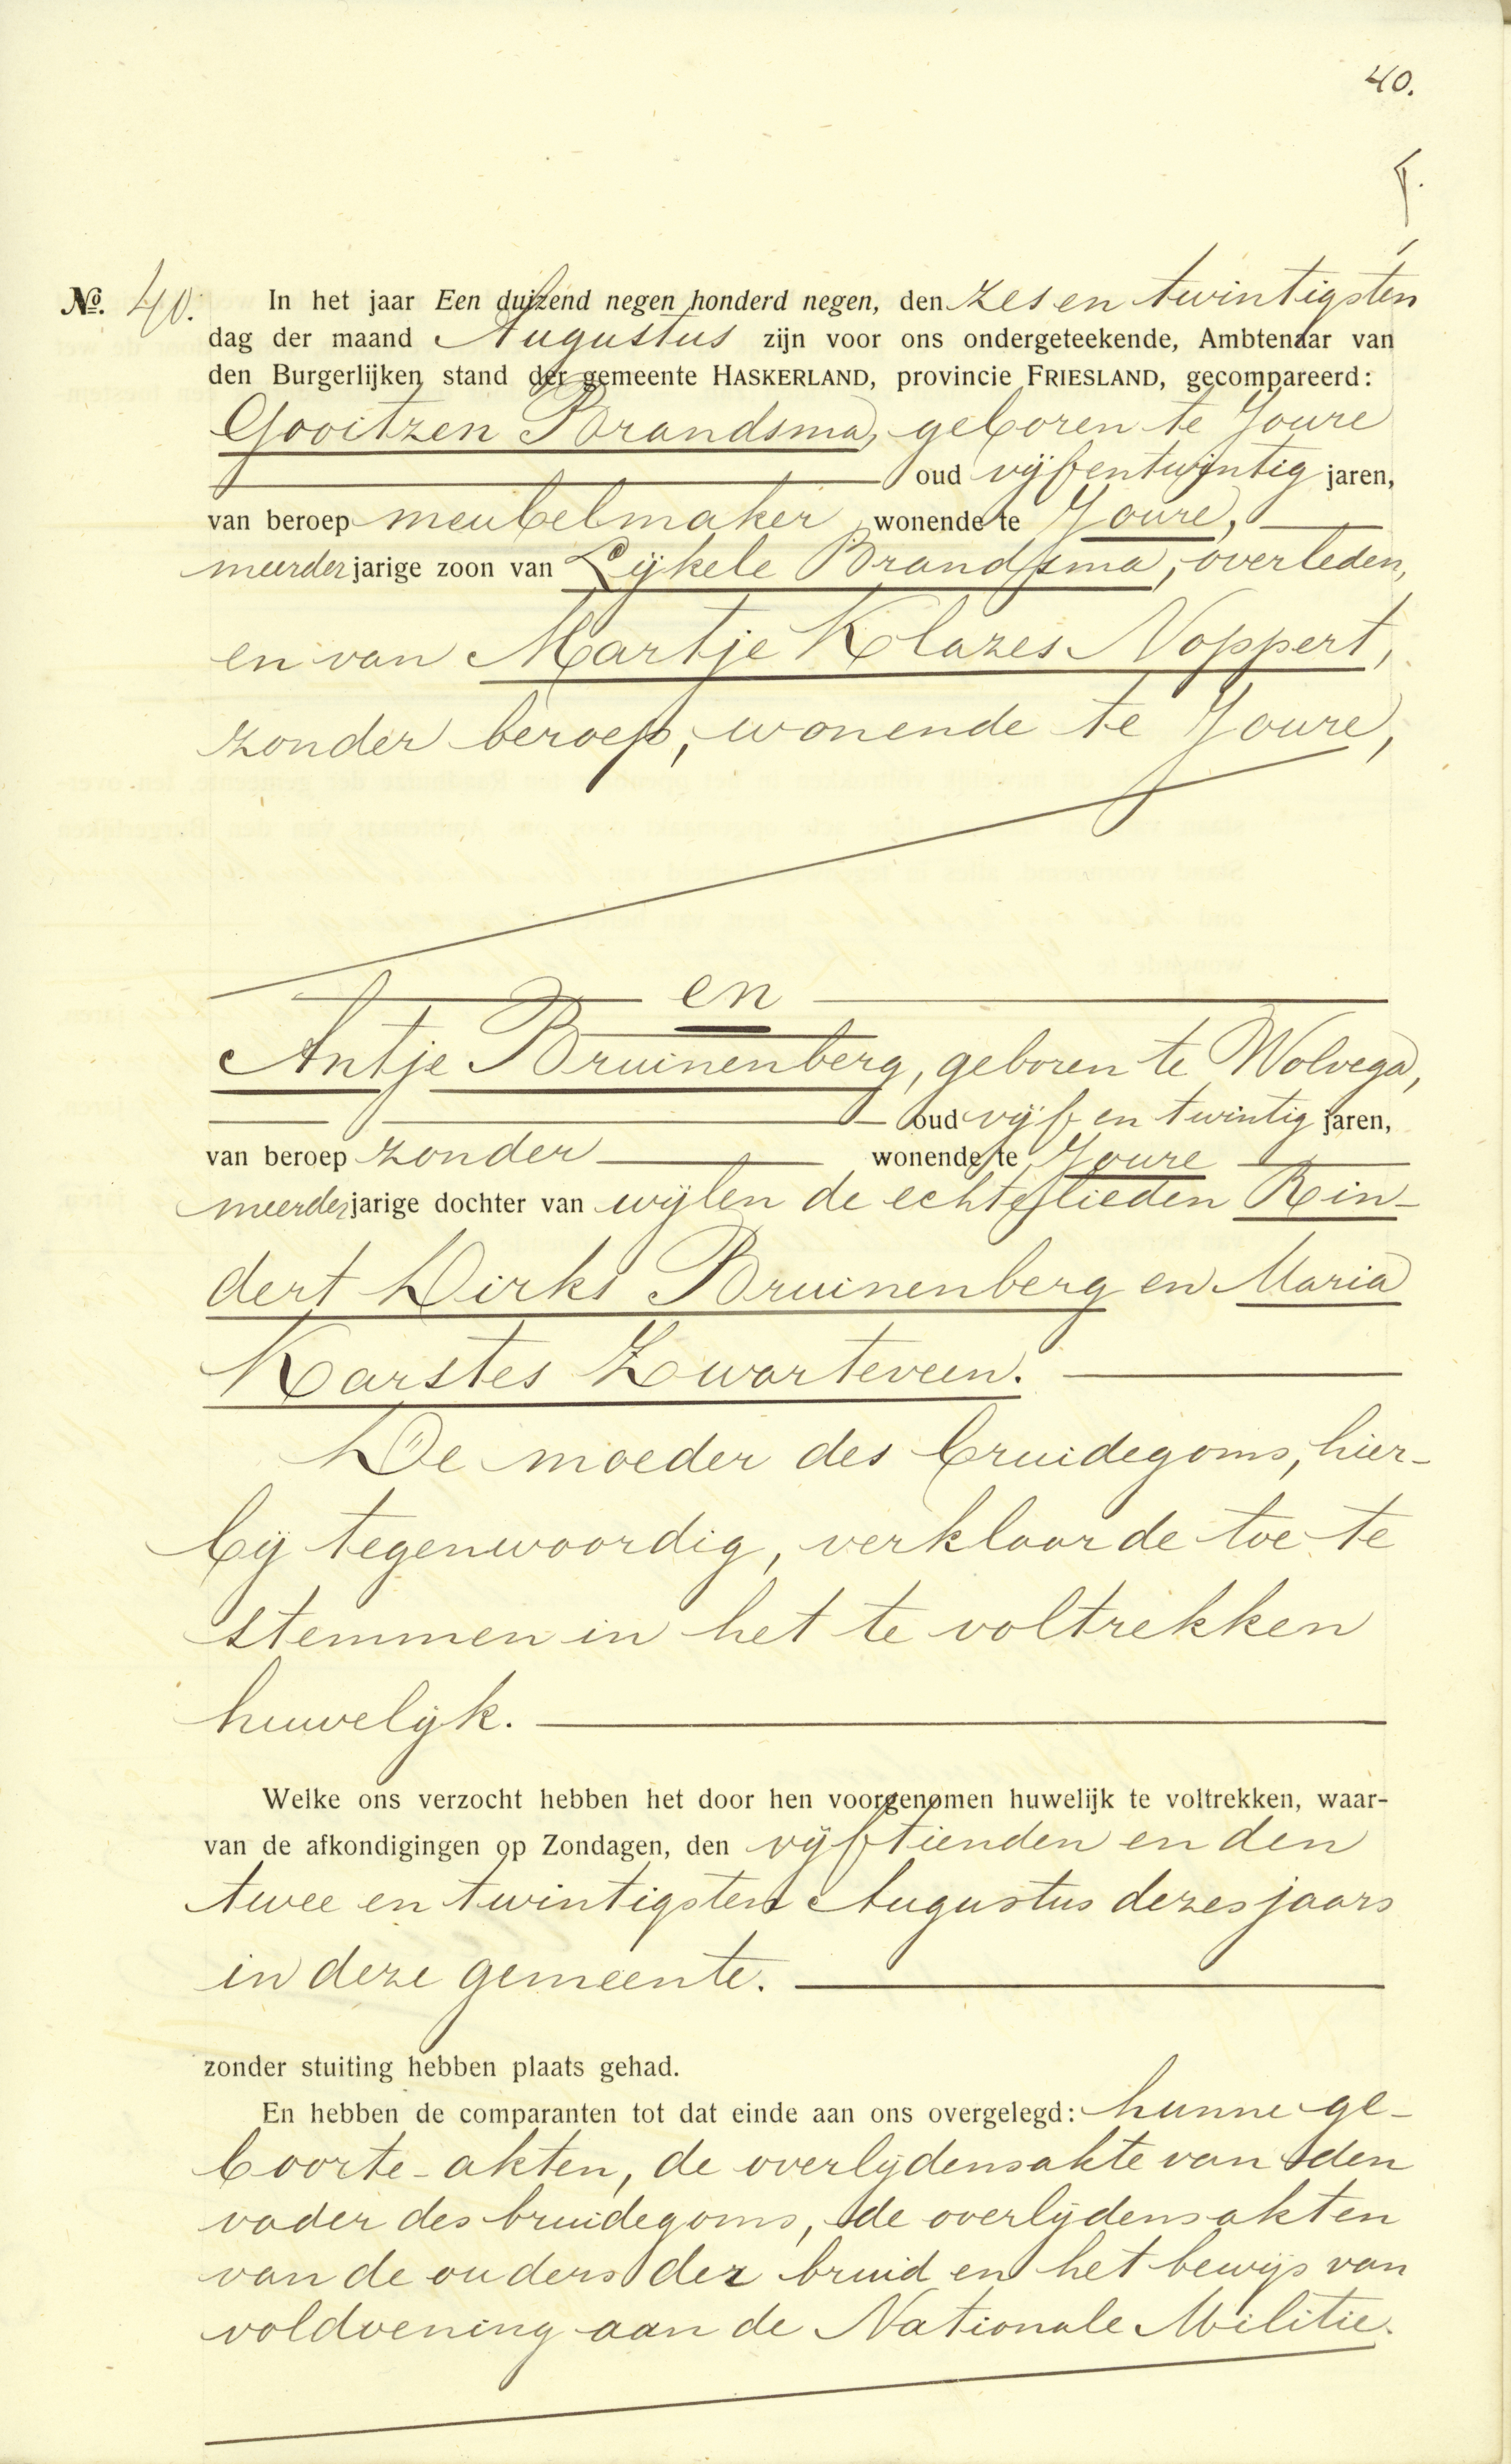 40.
f.
No. 40. In het jaar Een duizend negen honderd negen, den zes en twintigsten
dag der maand Augustus zijn voor ons ondergeteekende, Ambtenaar van
den Burgerlijken stand der gemeente HASKERLAND, provincie FRIESLAND, gecompareerd:
Gooitzen Brandsma, geboren te Joure
oud vijfentwintig jaren,
van beroep meubelmaker, wonende te Joure,
meerderjarige zoon van Lijkele Brandsma, overleden,
en van Martje Klazes Noppert,
zonder beroep, wonende te Joure,
en
Antje Bruinenberg, geboren te Wolvega,
oud vijf en twintig jaren,
van beroep zonder wonende te Joure
meerderjarige dochter van wijlen de echtelieden Rin-
dert Dirks Bruinenberg en Maria
Karstes Zwarteveen.
De moeder des bruidegoms, hier-
bij tegenwoordig, verklaarde toe te
stemmen in het te voltrekken
huwelijk.
Welke ons verzocht hebben het door hen voorgenomen huwelijk te voltrekken, waar-
van de afkondigingen op Zondagen, den vijftienden en den
twee en twintigsten Augustus dezes jaars
in deze gemeente.
zonder stuiting hebben plaats gehad.
En hebben de comparanten tot dat einde aan ons overgelegd: hunne ge-
boorte-akten, de overlijdensakte van den
vader des bruidegoms, de overlijdensakten
van de ouders der bruid en het bewijs van
voldoening aan de Nationale Militie.